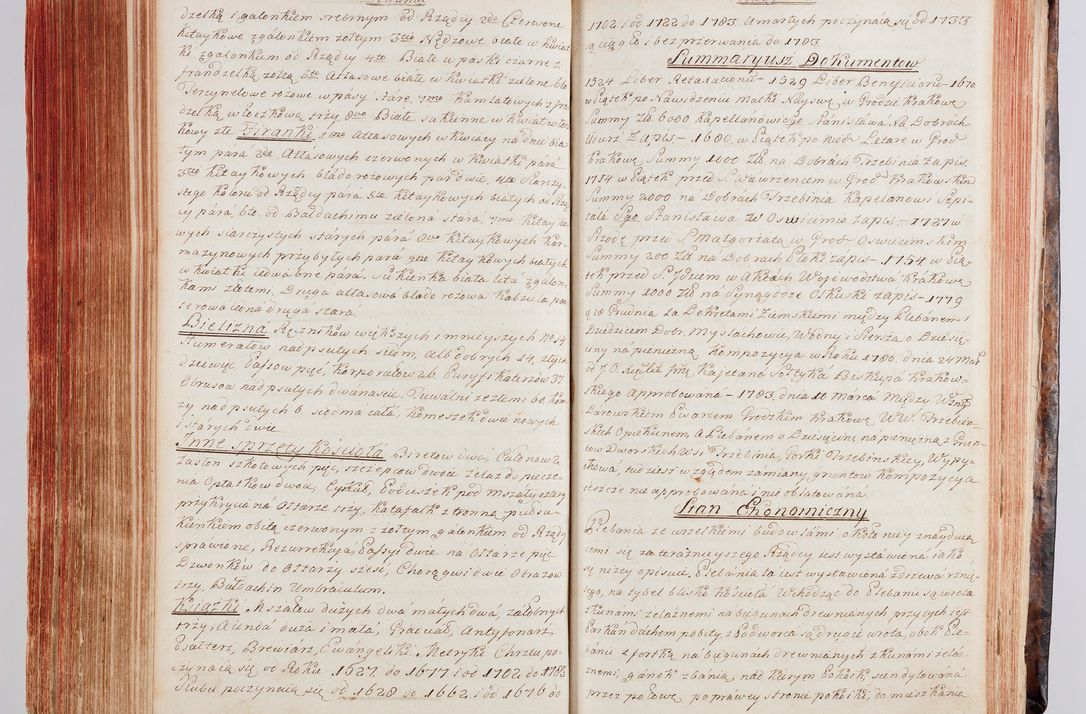 dzelką i galonkiem srebrnym od Rządcy 2do Czerwone
kitaykowe z galonkiem żołtym 3tio Nędzowe białe w kwiat
ki z galonkiem od Rządcy 4to Białe w paski czarne z
frandzelką żołtą 5to Atłasowe białe w kwiatki zielone 6to
Tercynelowe rożowe w pasy stare, 7mo Kamlatowych z fran
dzelką włoczkową trzy 8vo Białe sukienne w kwiat
kowy złe Firanki 1mo Atłasowych w kwiaty na dnie bia
łym pára 2do Atłasowych czerwonych w kwiatki pará
3tio kitaykowych bládo rożowych par dwie, 4to Starczy
stego koloru od Rządcy pára 5to kitaykowych białych od Rzą
cy pára, 6to od Baldachimu zielona stará 7mo Kitayko
wych siarczystych stárych párá 8vo kitaykowych kar
mazynowych przybyłych para 9no kitaykowych białych
w kwiatki jedwabne pára. Sukienka biała lita z galon
kami złotemi. Druga atłasowa blado rożowa
druga stara.
Bielizna Ręczników większych i mnieyszych No 14
Humerałow nadpsutych siedm, Alb dobrych 14, złych
dziewięć Pasow pięć, Korporałow 26. Puryfikaterzow 37
Obrusow nadpsutych dwánascie. Tuwalni ze złemi 60. Kom
ży nadpsutych 6 siodma cała, komeszek dwie nowych
i starych dwie
Inne sprzęty kościoła Biretow dwa, Cyborow 2
Zasłon szkołowych pięć, szczypcow dwoie żelaz do piecze
nia Opłatkow dwoie, Cyrkuł, Poduszek pod Mszały cztery
przykrycia na Ołtarze trzy, Katafalk z trunną, pułsu
kienkiem obita czerwonym z żołtym galonkiem od Rządcy
sprawione, Rezurrekcya, Passyi dwie na Ołtarze pięć
Dzwonkow do Ołtarzy sześć, Chorągwi dwie Obrazow
trzy, Baldachin Umbraculum.
Książki Mszałow dużych dwa małych dwá, żałobnych
trzy, Agenda duża i małá, Graduał, Antyfonarz,
Psałterz, Brewiarz, Ewangeliki, Metryki Chrztu po
czynaia się od Roku 1627. do 1677 i od 1702 do 1783
Slubu poczynaia się od 1628 do 1662. i od 1676 do
1702 i od 1722 do 1783 Umarłych poczynaią są od 1733
ciągło i bez przerwania do 1783
Summaryusz Dokumentow
1524 Liber Retaxationum - 1529 Liber Beneficiorum - 1670
w Piątek po Nawidzeniu Matki Nayśwę w Grodzie Krakowę
Summy Złł 6000 Kapellanowicze Stanisława Sá Dobrach
Zapis - 1680. w Piątek po nied. Lætare w Grod
Krakowę Summy 1000 Złł na Dobrach Trzebinia zapis
1714 w Piątek przed S. Wawrzencem w Grod Krakowskim
Summy 2000 na Dobrach Trzebinia Kapelanowi Szpi
tala Sgo Stanisława w Oswiecimie zapis - 1727 w
Srzodę przed S. Małgorzatą w Grod Oswiecimskim
Summy 200 Złł na Dobrach Płoki zapis - 1754 w Pią
tek przed S. Witem w Aktach Woiewodztwa Krakowę
Summy 1000 Złł ná Synagodze Olkuski zapis - 1779
Grudnia za Dekretami Ziemskiemi między Plebanem i
Dziedzicem Dobr Myslachowic, Wodny i Siersza o Dziesię
ciny na pienięzną Kompozycya w Roku 1780. dnia 24 Maj
od J. O. Xiążęcia Jmę Kajetana Sołtyká Biskupa Krakow
skiego approbowana - 1783. dnia 10 Marca Między
Darowskiem Pisarzem Grodzkim Krakowę WW Trzebin
skich Opiekunem, a Plebanem o Dziesięcinę na pienięzną z Grun
tow Dworskich Wsi Trzebinia, Gorki Trzebinskiey, Wypy
chowa, tudziesz względem zamiany gruntow Kompozycya
ieszcze nie approbowana i nie oblatowana.
Stan Ekonomiczny
Plebania ze wszelkiemi budowlámi około niey znaydui
cemi się za teraźnieyszego Rządcy iest wystawiona iako
się nizey opisuie, Plebánia ta iest wystawioná z drzewa rznię
tego, na tybel blisko kościoła. Wchodząc do Plebanii są wrota
z kunami żelaznemi na biegunach drewnianych, przy tych iest
Parkan Dachem pobity, z Podworca są drugie wrota, obok Ple
banii z fortką na biegunach drewnianych z kunami żela
znemi, ganek z bánią, nad ktorym Pokoik,
przez połowę, poprawey stronie pokoiki, do mieszkánia